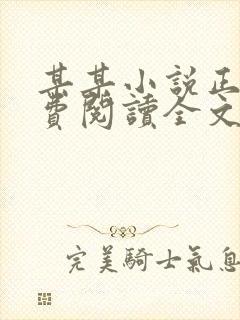 某某小說正
費閱讀全文
完美騎士氣息